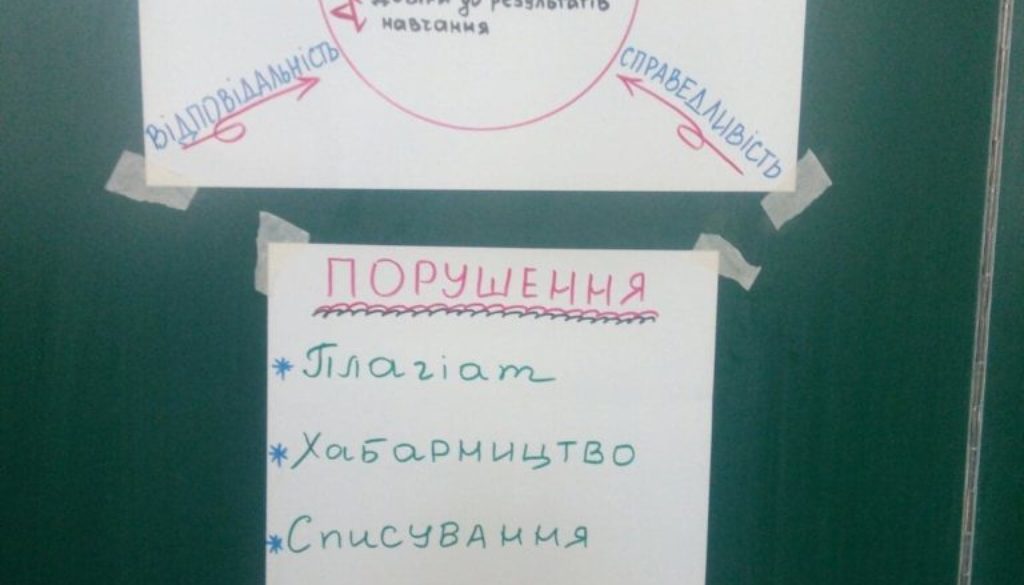 до результатів
навчання
ВІДПОВІДАЛЬНІСТЬ
СПРАВЕДЛИВІСТЬ
ПОРУШЕННЯ
* Плагіат
* Хабарництво
* Списування